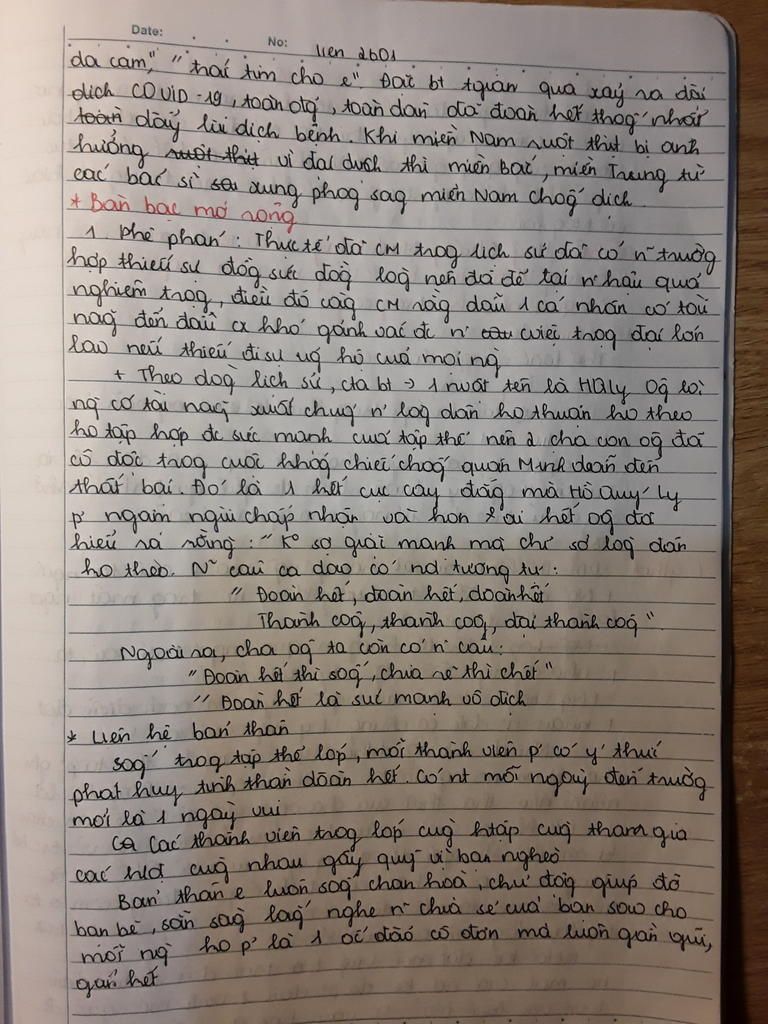 Date: . . No: liên 2601
da cam," "trái tim cho e". Đặt bt tquan qua xảy ra đại
dịch COVID-19, toàn đtg, toàn dân đã đoàn kết thog nhất
toàn đẩy lùi dịch bệnh. Khi miền Nam ruột thịt bị anh
hưởng ruột thịt vì đại dịch thì miền Bắc, miền Trung từ
các bác sĩ xung phog sag miền Nam chog dịch.
* Bàn bạc mở rộng
1. Phê phán: Thực tế đã CM trog lịch sử đã có n~ trườg
hợp thiếu sự đồg sức đồg lòg nên đã để lại n~ hậu quả
nghiêm trog, điều đó càg CM rằg dẫu 1 cá nhân có tài
nag đến đâu cx khó gánh vác đc n~ việc trog đại lớn
lao nếu thiếu đi sự ug hộ của mọi ng
+ Theo dog lịch sử, cta bt → 1 nvật tên là HQly Og là
ng có tài nag xuất chug n~ log dân ko thuận ko theo
ko tập hợp đc sức mạnh của tập thể nên 2 cha con og đã
cô độc trog cuộc khág chiến chốg quân Minh dẫn đến
thất bại. Đó là 1 kết cục cay đắg mà Hồ Quý Ly
p' ngậm ngùi chấp nhận và hơn ai hết og đã
hiểu rõ rằg: "Ko sợ giặc mạnh mà chỉ sợ log dân
ko theo. N~ câu ca dao có nd tương tự:
" Đoàn kết, đoàn kết, đoàn kết
Thành côg, thành côg, đại thành côg".
Ngoài ra, cha og ta còn có n~ câu:
"Đoàn kết thì sốg, chia rẽ thì chết"
" Đoàn kết là sức mạnh vô địch
* Liên hệ bản thân
Sốg trog tập thể lớp, mỗi thành viên p' có ý thức
phát huy tinh thần đoàn kết. Có nt mỗi ngày đến trườg
mới là 1 ngày vui
Các thành viên trog lớp cùg htập cùg tham gia
các hđ cùg nhau gây quỹ vì bạn nghèo
Bản thân e luôn sốg chan hoà, chủ độg giúp đỡ
bạn bè, sẵn sàg lắg nghe n~ chia sẻ của bạn sao cho
mỗi ng ko p' là 1 ốc đảo cô đơn mà luôn gần gũi,
gắn kết